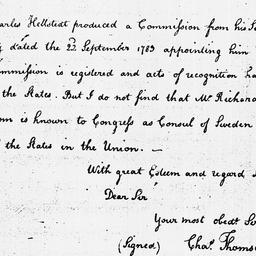 arles Hellstedt produced a Commission from his
dated the 22 September 1783 appointing him
mmission is registered and acts of recognition ha
the States. But I do not find that Mr Richard
is known to Congress as Consul of Sweden
the States in the Union. —
With great Esteem and regard
Dear Sir
Your most obedt
(Signed) Chas Thoms